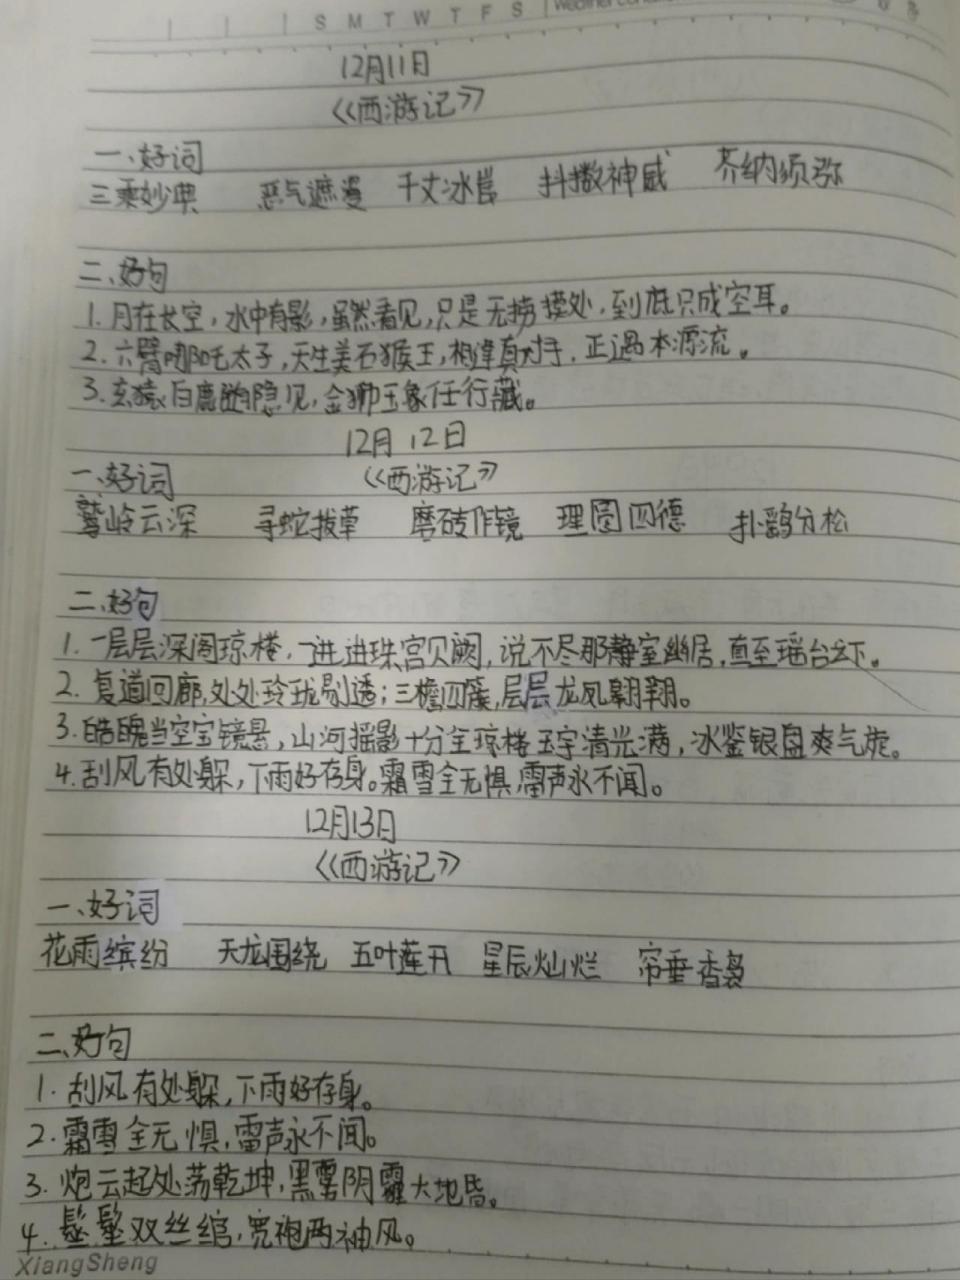 S M T W T F S
12月11日
《西游记》
一、好词
三乘妙典 恶气遮漫 千丈冰崖 抖擞神威 芥纳须弥
二、好句
1. 月在长空，水中有影，虽然看见，只是无捞摸处，到底只成空耳。
2. 六臂哪吒太子，天生美石猴王，相逢真对手，正遇本源流。
3. 玄猿白鹿随隐见，金狮玉象任行藏。
12月12日
一、好词 《西游记》
鹫岭云深 寻蛇拨草 磨砖作镜 理圆四德 扑鹞分松
二、好句
1. 一层层深阁琼楼，一进进珠宫贝阙，说不尽那静室幽居，直至瑶台之下。
2. 复道回廊，处处玲珑剔透；三檐四簇，层层龙凤翱翔。
3. 皓魄当空宝镜悬，山河摇影十分全琼楼玉宇清光满，冰鉴银盘爽气旋。
4. 刮风有处躲，下雨好存身。霜雪全无惧，雷声永不闻。
12月13日
《西游记》
一、好词
花雨缤纷 天龙围绕 五叶莲开 星辰灿烂 帘垂香袅
二、好句
1. 刮风有处躲，下雨好存身。
2. 霜雪全无惧，雷声永不闻。
3. 炮云起处荡乾坤，黑雾阴霾大地昏。
4. 髽髻双丝绾，宽袍两袖风。
XiangSheng